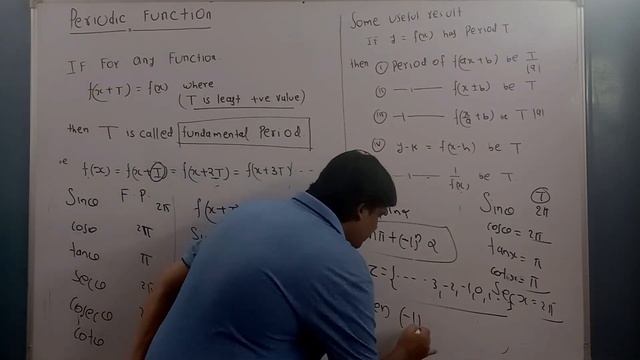 Periodic Function
IF For any Function
f(x+T) = f(x) where
(T is least +ve value)
then T is called fundamental Period
ie f(x) = f(x+T) = f(x+2T) = f(x+3T) ----
F.P.
Sinθ 2π
cosθ 2π
tanθ π
Secθ 2π
Cosecθ 2π
Cotθ
f(x+
Some useful result
IF y = f(x) has Period T
then (i) Period of f(ax+b) be T/|a|
(ii) —ı—— f(x±b) be T
(iii) —ı—— f(x/a ±b) be T|a|
(iv) y-k = f(x-h) be T
—ı—— 1/f(x) be T
π + (-1)ⁿ α
= {----- 3,-2,-1,0,1
(-1)
T
Sinθ 2π
cosθ = 2π
tanx = π
cotx = π
Secx = 2π